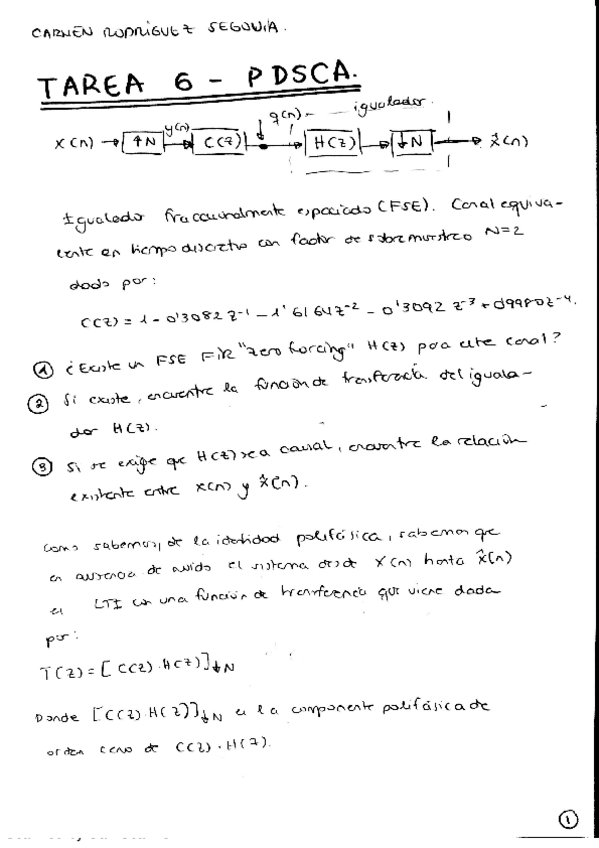 CARMEN RODRÍGUEZ SEGOVIA.
TAREA 6 - PDSCA.
q(n) igualador
x(n) → ↑N y(n) C(z) H(z) ↓N x̂(n)
Igualador fraccionalmente espaciado (FSE). Canal equiva-
lente en tiempo discreto con factor de sobremuestreo N=2
dado por:
C(z) = 1 - 0'3082 z⁻¹ - 1'6164 z⁻² - 0'3092 z⁻³ + 0'9980 z⁻⁴.
① ¿Existe un FSE FIR "zero forcing" H(z) para este canal?
② Si existe, encuentre la función de transferencia del iguala-
dor H(z).
③ Si se exige que H(z) sea causal, encuentre la relación
existente entre x(n) y x̂(n).
Como sabemos, de la identidad polifásica, sabemos que
en ausencia de ruido el sistema desde x(n) hasta x̂(n)
es LTI con una función de transferencia que viene dada
por:
T(z) = [C(z) · H(z)]↓N
Donde [C(z) H(z)]↓N es la componente polifásica de
orden cero de C(z) · H(z).
①